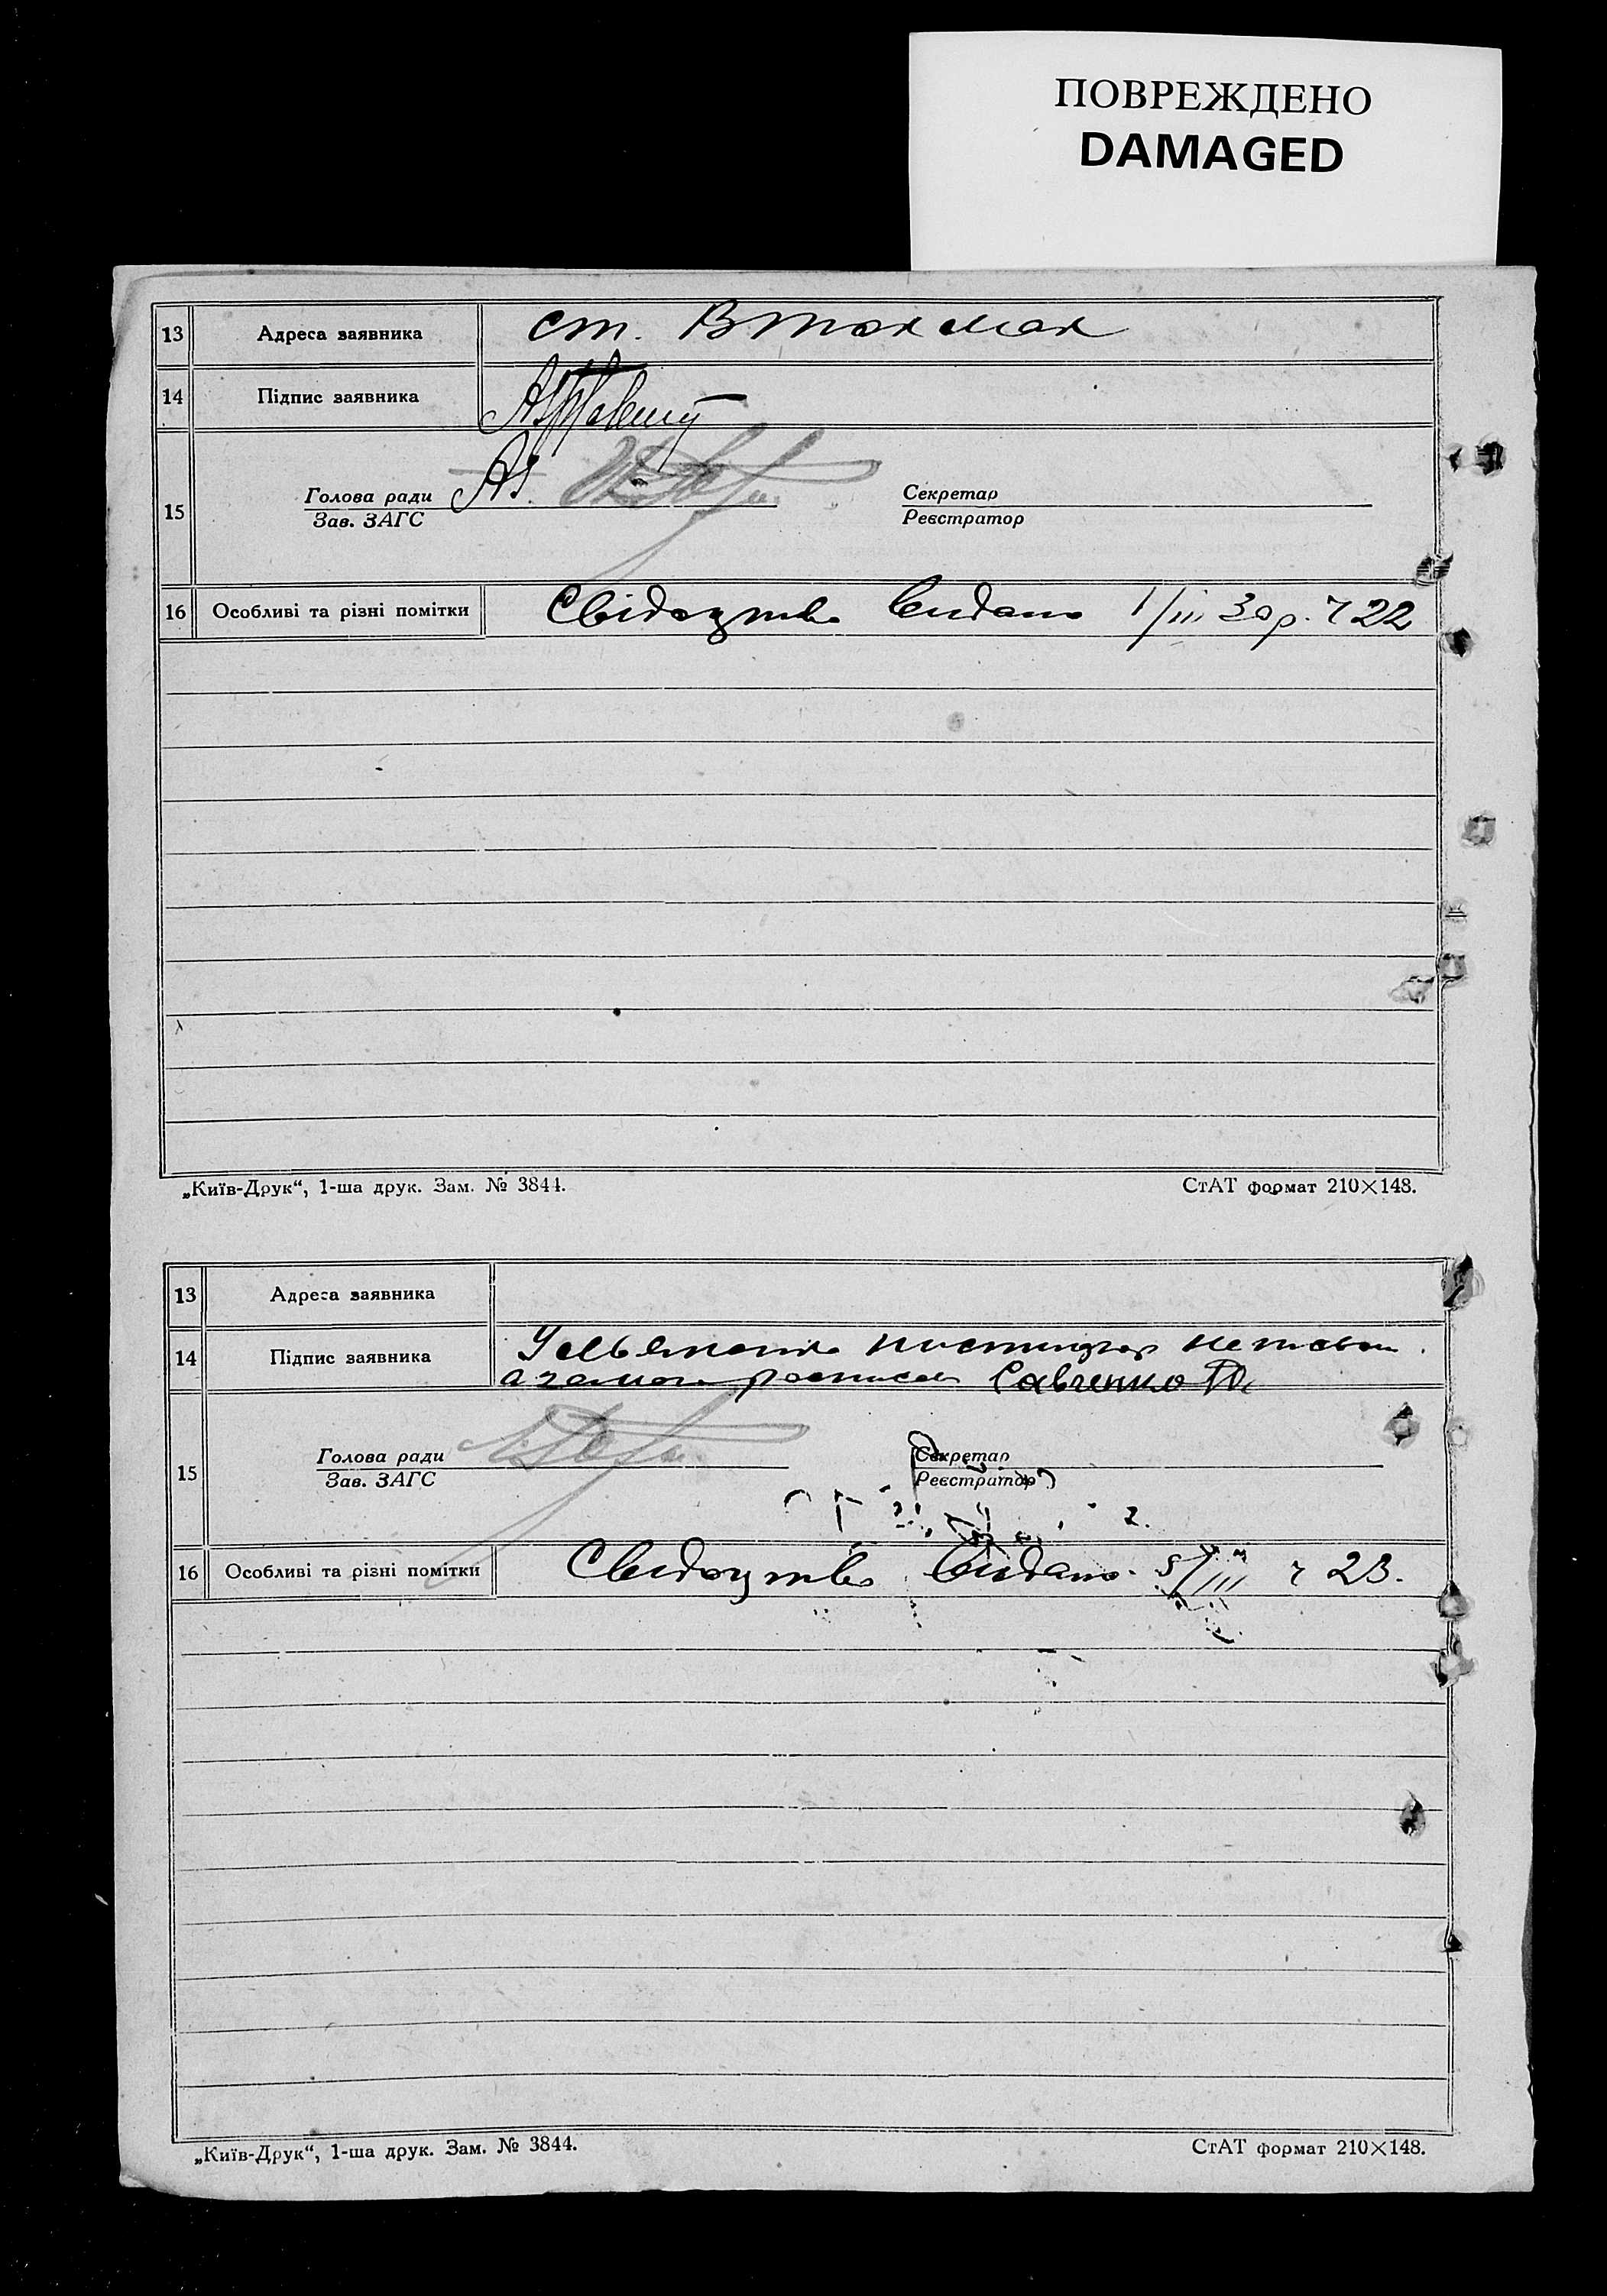 ПОВРЕЖДЕНО
DAMAGED
13 Адреса заявника ст. В Токмак
14 Підпис заявника
Голова ради Секретар
15
Зав. ЗАГС Реєстратор
16 Особливі та різні помітки Свідоцтво видано 1/III 30 р. ч 22
„Київ-Друк“, 1-ша друк. Зам. № 3844. СтАТ формат 210×148.
13 Адреса заявника
14 Підпис заявника
а за него росписался Савченко
Голова ради Секретар
15
Зав. ЗАГС Реєстратор
16 Особливі та різні помітки Свидоцтво видано 5/III ч 23.
„Київ-Друк“, 1-ша друк. Зам. № 3844. СтАТ формат 210×148.